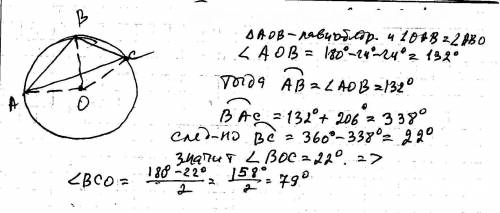 B
C
A
O
ΔAOB-равнобедр. и ∠OAB=∠ABO
∠AOB = 180°-24°-24°=132°
тогда AB=∠AOB=132°
BAC=132°+206°=338°
след-но BC=360°-338°=22°
значит ∠BOC=22°. =>
∠BCO = 180°-22°/2 = 158°/2 = 79°